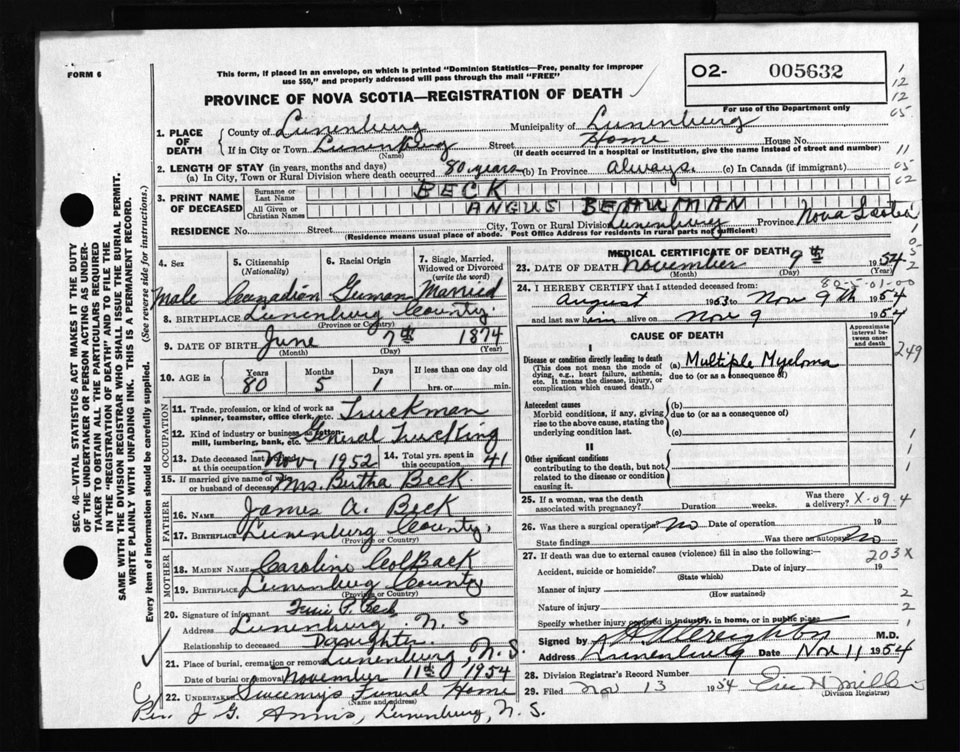 FORM 6
This form, if placed in an envelope, on which is printed "Dominion Statistics—Free, penalty for improper use $50," and properly addressed will pass through the mail "FREE"
PROVINCE OF NOVA SCOTIA—REGISTRATION OF DEATH
02- 005632
For use of the Department only
SEC. 46—VITAL STATISTICS ACT MAKES IT THE DUTY OF THE UNDERTAKER OR PERSON ACTING AS UNDERTAKER TO OBTAIN ALL THE PARTICULARS REQUIRED IN THE "REGISTRATION OF DEATH" AND TO FILE THE SAME WITH THE DIVISION REGISTRAR WHO SHALL ISSUE THE BURIAL PERMIT.
WRITE PLAINLY WITH UNFADING INK. THIS IS A PERMANENT RECORD.
Every item of information should be carefully supplied. (See reverse side for instructions.)
1. PLACE OF DEATH County of Lunenburg Municipality of Lunenburg
If in City or Town Lunenburg Street Home House No.
(Name) (If death occurred in a hospital or institution, give the name instead of street and number)
2. LENGTH OF STAY (in years, months and days)
(a) In City, Town or Rural Division where death occurred 80 years (b) In Province always. (c) In Canada (if immigrant)
3. PRINT NAME OF DECEASED Surname or Last Name BECK
All Given or Christian Names ANGUS BEAUMAN
RESIDENCE No. Street City, Town or Rural Division Lunenburg Province Nova Scotia
(Residence means usual place of abode. Post Office Address for residents in rural parts not sufficient)
4. Sex 5. Citizenship (Nationality) 6. Racial Origin 7. Single, Married, Widowed or Divorced (write the word)
Male Canadian German Married
8. BIRTHPLACE Lunenburg County.
(Province or Country)
9. DATE OF BIRTH June 7th 1874
(Month) (Day) (Year)
10. AGE in Years 80 Months 5 Days 1 If less than one day old hrs. or min.
OCCUPATION
11. Trade, profession, or kind of work as spinner, teamster, office clerk, etc. Truckman
12. Kind of industry or business, as cotton-mill, lumbering, bank, etc. General Trucking
13. Date deceased last at this occupation Nov, 1952 14. Total yrs. spent in this occupation 41
15. If married give name of wife or husband of deceased Mrs. Bertha Beck.
FATHER
16. Name James A. Beck
17. Birthplace Lunenburg County.
(Province or Country)
MOTHER
18. Maiden Name Caroline Colback
19. Birthplace Lunenburg County
(Province or Country)
20. Signature of informant P. Beck
Address Lunenburg. N.S
Relationship to deceased Daughter.
21. Place of burial, cremation or removal Lunenburg N.S.
Date of burial or removal November 11th 1954
22. Undertaker Sweeny's Funeral Home
(Name and address)
Rev. J G. Annis, Lunenburg, N.S.
MEDICAL CERTIFICATE OF DEATH
23. DATE OF DEATH November 9th 1954
(Month) (Day) (Year)
24. I HEREBY CERTIFY that I attended deceased from: 
August 1953 to Nov 9th 1954
and last saw him alive on Nov 9 1954
CAUSE OF DEATH
Approximate interval between onset and death
I
Disease or condition directly leading to death (This does not mean the mode of dying, e.g., heart failure, asthenia, etc. It means the disease, injury, or complication which caused death.)
(a) Multiple Myeloma
due to (or as a consequence of)
Antecedent causes
Morbid conditions, if any, giving rise to the above cause, stating the underlying condition last.
(b)
due to (or as a consequence of)
(c)
II
Other significant conditions contributing to the death, but not related to the disease or condition causing it.
249
25. If a woman, was the death associated with pregnancy? Duration weeks. Was there a delivery?
X-09.4
26. Was there a surgical operation? No Date of operation 19
State findings Was there an autopsy No
27. If death was due to external causes (violence) fill in also the following:—
203X
Accident, suicide or homicide? Date of injury 19
(State which)
Manner of injury
(How sustained)
Nature of injury
Specify whether injury occurred in industry, in home, or in public place
Signed by M.D.
Address Lunenburg Date Nov 11 1954
28. Division Registrar's Record Number
29. Filed Nov 13 1954 Eric
(Division Registrar)